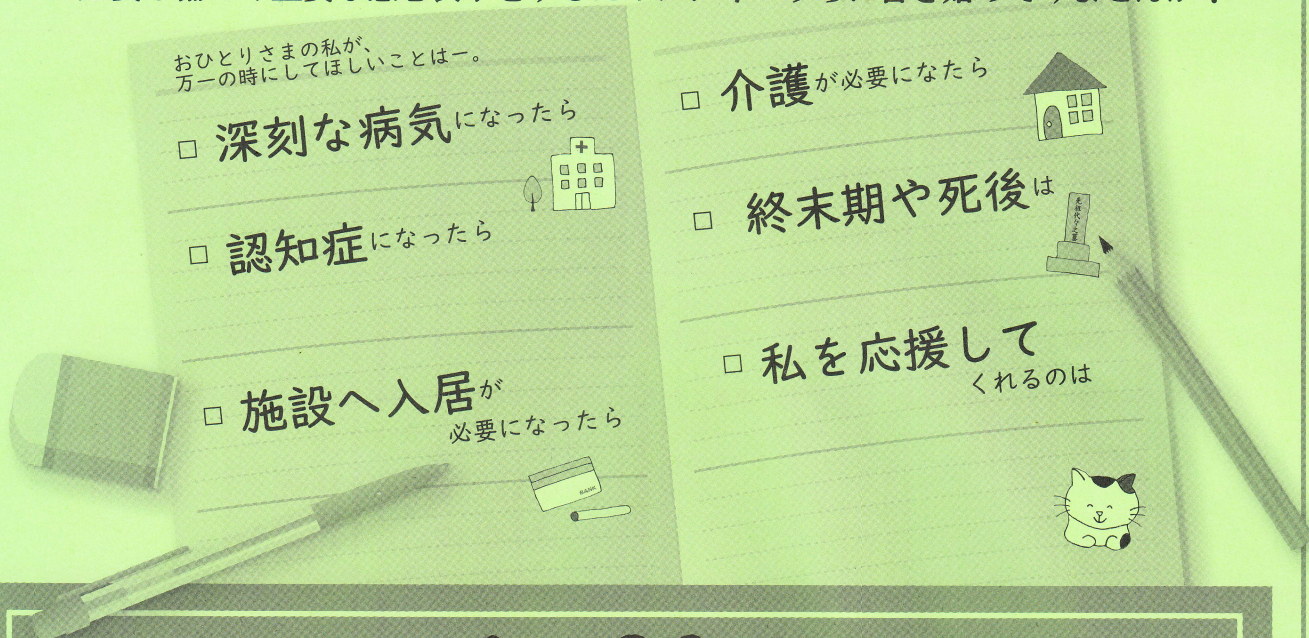 おひとりさまの私が、
万一の時にしてほしいことはー。
□ 深刻な病気になったら
□ 認知症になったら
□ 施設へ入居が
必要になったら
BANK
□ 介護が必要になたら
□ 終末期や死後は
先祖代々之墓
□ 私を応援して
くれるのは